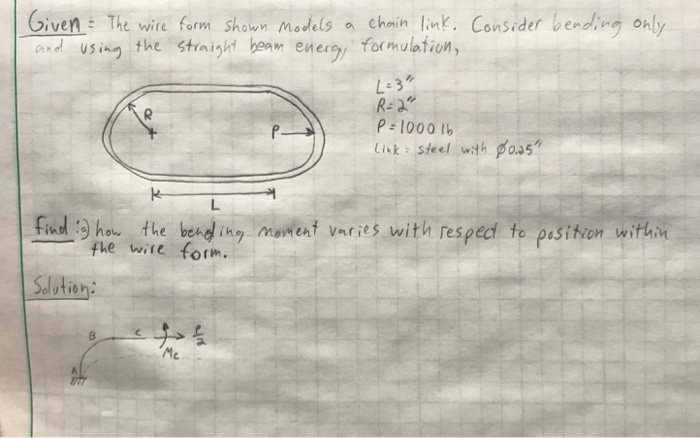 Given: The wire form shown models a chain link. Consider bending only
and using the straight beam energy formulation,
L=3"
R=2"
P=1000 lb
Link: steel with Ø0.25"
R
P
L
find: a) how the bending moment varies with respect to position within
the wire form.
Solution:
B
C
P/2
Mc
A